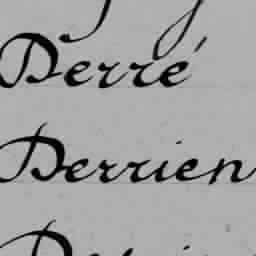 Derré
Derrien